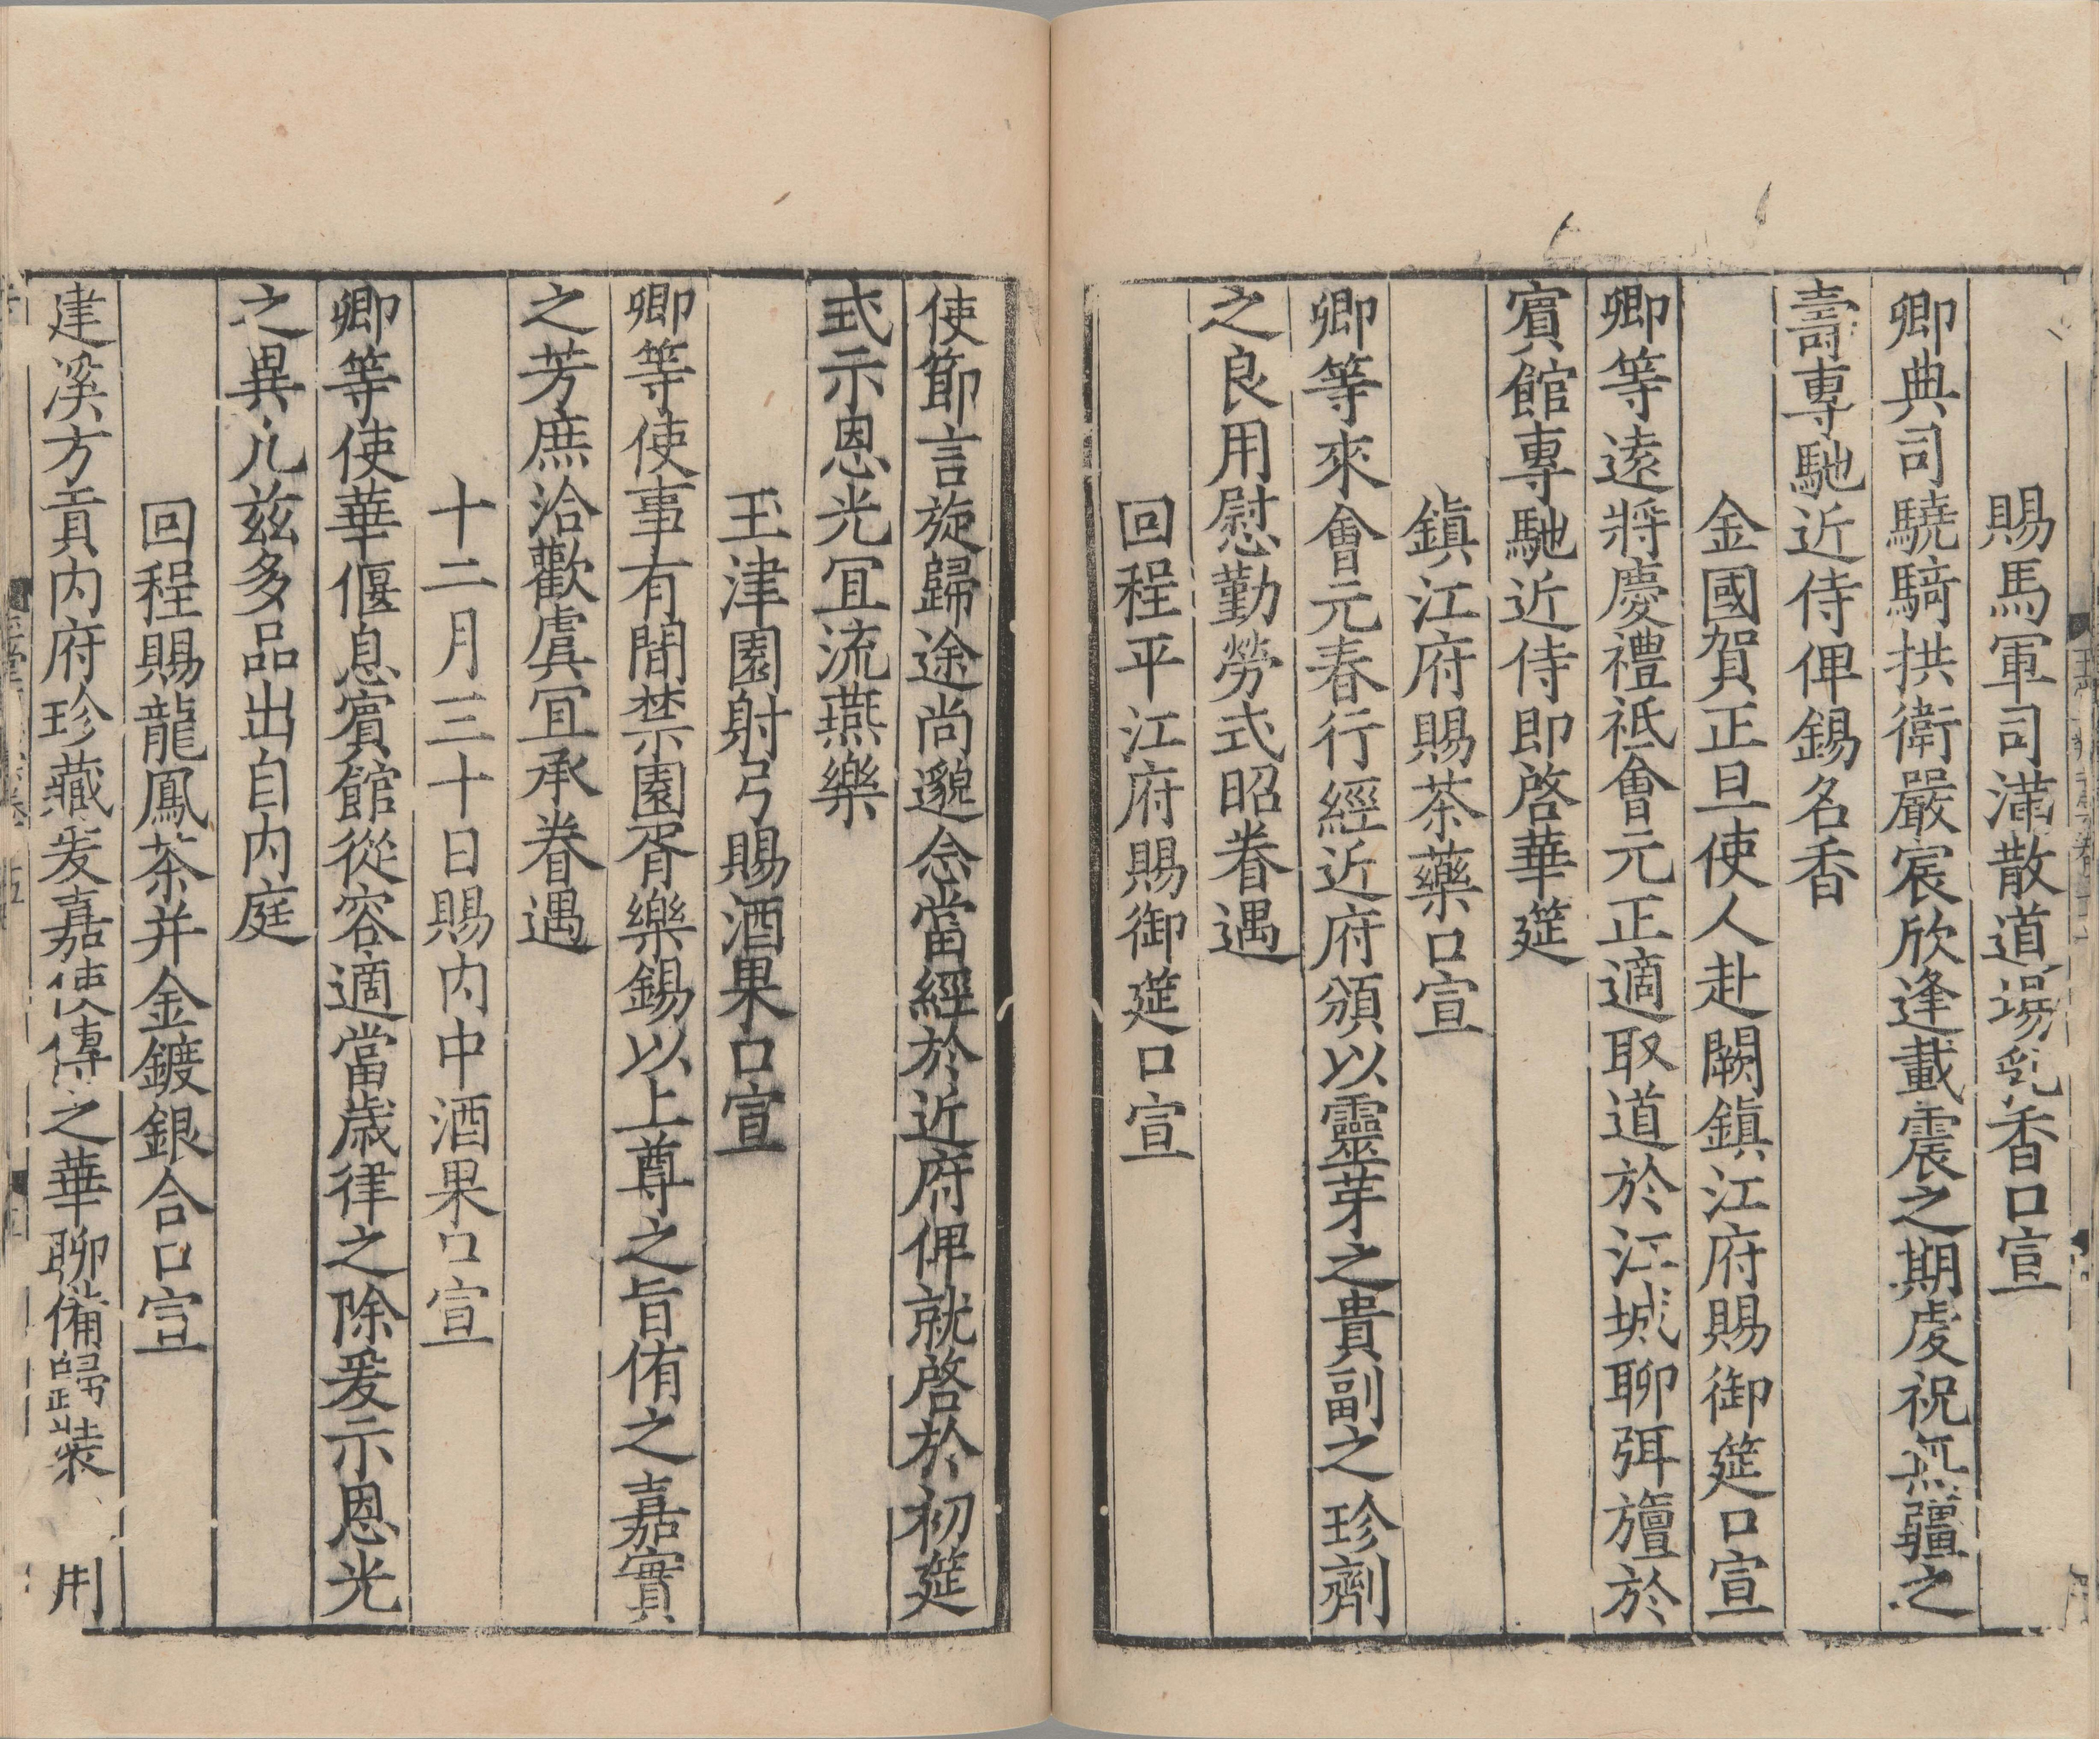 賜馬軍司滿散道場乳香口宣
卿典司驍騎拱衛嚴宸欣逢載震之期虔祝無疆之
壽專馳近侍俾錫名香
金國賀正旦使人赴闕鎮江府賜御筵口宣
卿等遠將慶禮祗會元正適取道於江城聊弭旜於
賔館專馳近侍即啓華筵
鎮江府賜茶藥口宣
卿等來會元春行經近府頒以靈芽之貴副之珍劑
之良用慰勤勞式昭眷遇
回程平江府賜御筵口宣
使節言旋歸途尚邈念當經於近府俾就啓於初筵
式示恩光冝流燕樂
玉津園射弓賜酒果口宣
卿等使事有間禁園胥樂錫以上尊之旨侑之嘉實
之芳庶洽歡虞冝承眷遇
十二月三十日賜内中酒果口宣
卿等使華偃息賔館從容適當歲律之除爰示恩光
之異凡兹多品出自内庭
回程賜龍鳳茶并金鍍銀合口宣
建溪方貢内府珍藏爰嘉使傳之華聊備歸装用